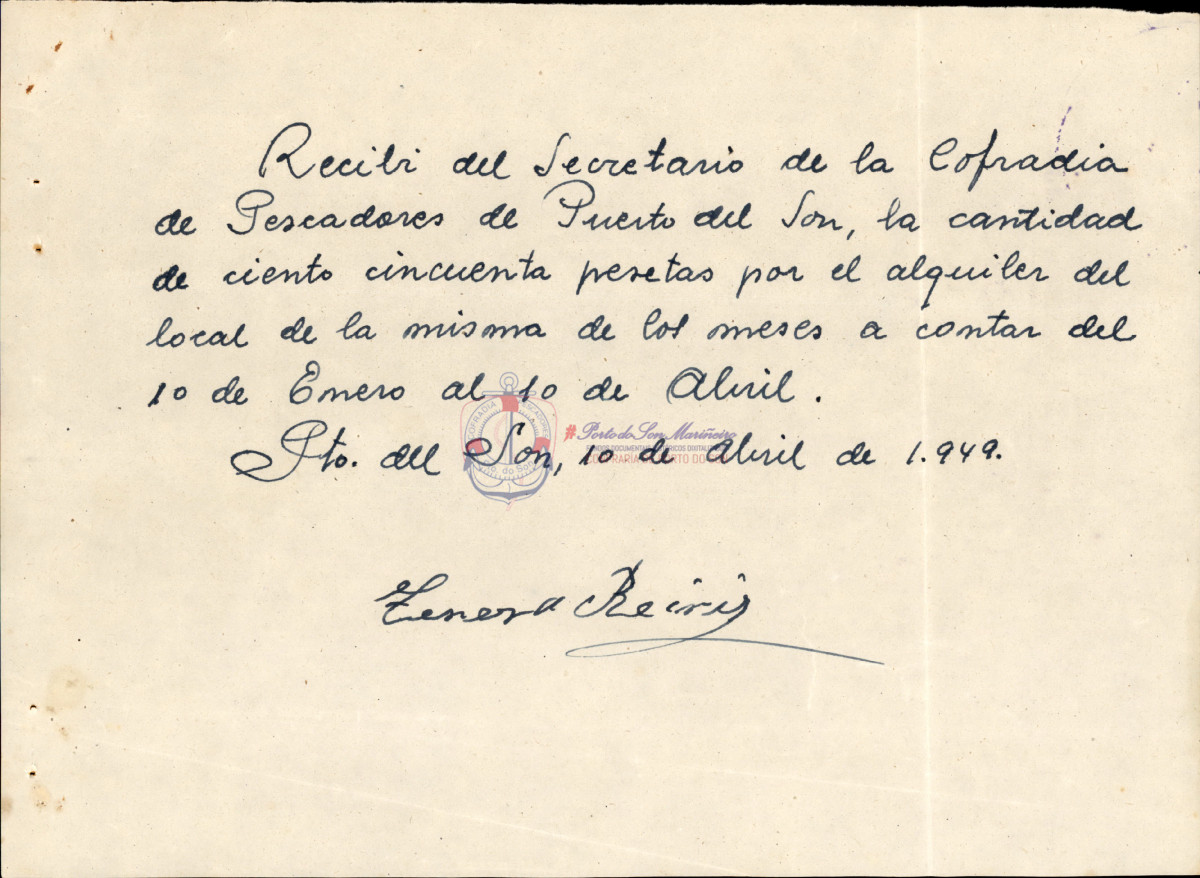 Recibi del Secretario de la Cofradia
de Pescadores de Puerto del Son, la cantidad
de ciento cincuenta pesetas por el alquiler del
local de la misma de los meses a contar del
10 de Enero al 10 de Abril.
#Porto do Son Mariñeiro
Pto. del Son, 10 de Abril de 1.949.
Teresa Reiriz